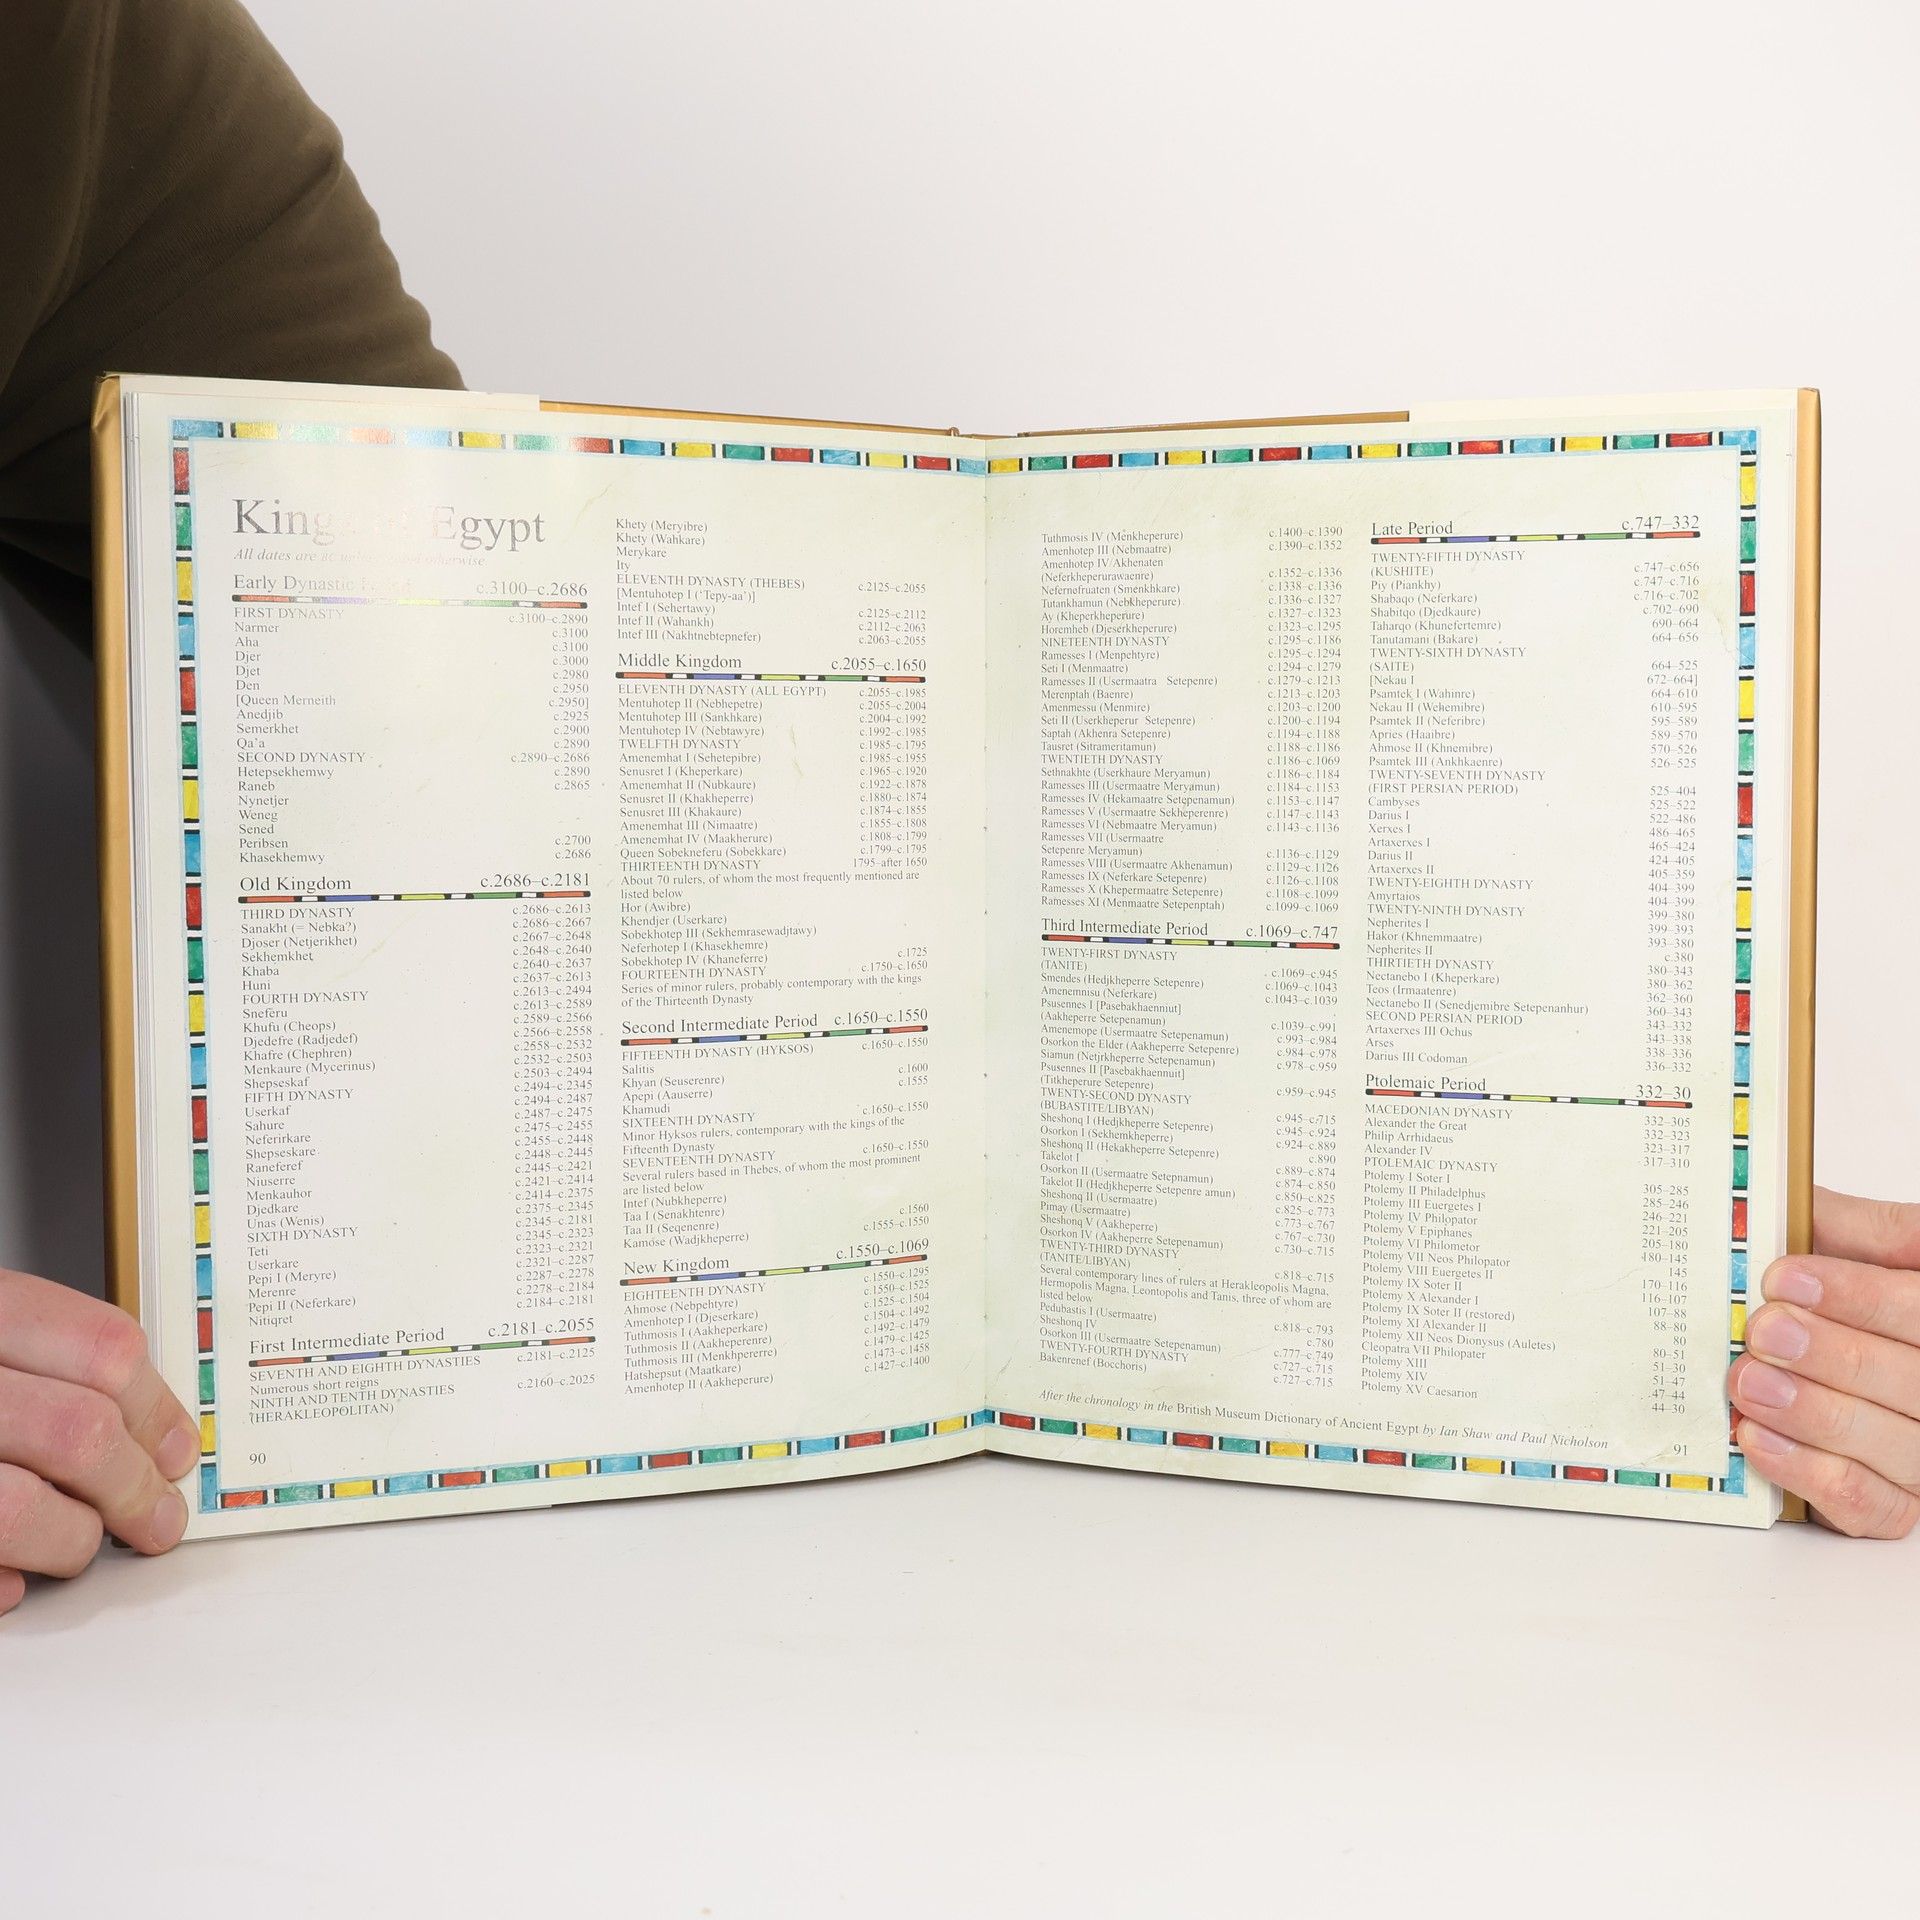 Kings of Egypt
All dates are BC unless stated otherwise
Early Dynastic Period c.3100–c.2686
FIRST DYNASTY c.3100–c.2890
Narmer c.3100
Aha c.3100
Djer c.3000
Djet c.2980
Den c.2950
[Queen Merneith c.2950]
Anedjib c.2925
Semerkhet c.2900
Qa'a c.2890
SECOND DYNASTY c.2890–c.2686
Hetepsekhemwy c.2890
Raneb c.2865
Nynetjer
Weneg
Sened
Peribsen c.2700
Khasekhemwy c.2686
Old Kingdom c.2686–c.2181
THIRD DYNASTY c.2686–c.2613
Sanakht (= Nebka?) c.2686–c.2667
Djoser (Netjerikhet) c.2667–c.2648
Sekhemkhet c.2648–c.2640
Khaba c.2640–c.2637
Huni c.2637–c.2613
FOURTH DYNASTY c.2613–c.2494
Sneferu c.2613–c.2589
Khufu (Cheops) c.2589–c.2566
Djedefre (Radjedef) c.2566–c.2558
Khafre (Chephren) c.2558–c.2532
Menkaure (Mycerinus) c.2532–c.2503
Shepseskaf c.2503–c.2494
FIFTH DYNASTY c.2494–c.2345
Userkaf c.2494–c.2487
Sahure c.2487–c.2475
Neferirkare c.2475–c.2455
Shepseskare c.2455–c.2448
Raneferef c.2448–c.2445
Niuserre c.2445–c.2421
Menkauhor c.2421–c.2414
Djedkare c.2414–c.2375
Unas (Wenis) c.2375–c.2345
SIXTH DYNASTY c.2345–c.2181
Teti c.2345–c.2323
Userkare c.2323–c.2321
Pepi I (Meryre) c.2321–c.2287
Merenre c.2287–c.2278
Pepi II (Neferkare) c.2278–c.2184
Nitiqret c.2184–c.2181
First Intermediate Period c.2181–c.2055
SEVENTH AND EIGHTH DYNASTIES c.2181–c.2125
Numerous short reigns
NINTH AND TENTH DYNASTIES c.2160–c.2025
(HERAKLEOPOLITAN)
90
Khety (Meryibre)
Khety (Wahkare)
Merykare
Ity
ELEVENTH DYNASTY (THEBES) c.2125–c.2055
[Mentuhotep I ('Tepy-aa')]
Intef I (Sehertawy) c.2125–c.2112
Intef II (Wahankh) c.2112–c.2063
Intef III (Nakhtnebtepnefer) c.2063–c.2055
Middle Kingdom c.2055–c.1650
ELEVENTH DYNASTY (ALL EGYPT) c.2055–c.1985
Mentuhotep II (Nebhepetre) c.2055–c.2004
Mentuhotep III (Sankhkare) c.2004–c.1992
Mentuhotep IV (Nebtawyre) c.1992–c.1985
TWELFTH DYNASTY c.1985–c.1795
Amenemhat I (Sehetepibre) c.1985–c.1955
Senusret I (Kheperkare) c.1965–c.1920
Amenemhat II (Nubkaure) c.1922–c.1878
Senusret II (Khakheperre) c.1880–c.1874
Senusret III (Khakaure) c.1874–c.1855
Amenemhat III (Nimaatre) c.1855–c.1808
Amenemhat IV (Maakherure) c.1808–c.1799
Queen Sobekneferu (Sobekkare) c.1799–c.1795
THIRTEENTH DYNASTY 1795–after 1650
About 70 rulers, of whom the most frequently mentioned are
listed below
Hor (Awibre)
Khendjer (Userkare)
Sobekhotep III (Sekhemrasewadjtawy)
Neferhotep I (Khasekhemre)
Sobekhotep IV (Khaneferre) c.1725
FOURTEENTH DYNASTY c.1750–c.1650
Series of minor rulers, probably contemporary with the kings
of the Thirteenth Dynasty
Second Intermediate Period c.1650–c.1550
FIFTEENTH DYNASTY (HYKSOS) c.1650–c.1550
Salitis
Khyan (Seuserenre) c.1600
Apepi (Aauserre) c.1555
Khamudi
SIXTEENTH DYNASTY c.1650–c.1550
Minor Hyksos rulers, contemporary with the kings of the
Fifteenth Dynasty
SEVENTEENTH DYNASTY c.1650–c.1550
Several rulers based in Thebes, of whom the most prominent
are listed below
Intef (Nubkheperre)
Taa I (Senakhtenre)
Taa II (Seqenenre) c.1560
Kamose (Wadjkheperre) c.1555–c.1550
New Kingdom c.1550–c.1069
EIGHTEENTH DYNASTY c.1550–c.1295
Ahmose (Nebpehtyre) c.1550–c.1525
Amenhotep I (Djeserkare) c.1525–c.1504
Tuthmosis I (Aakheperkare) c.1504–c.1492
Tuthmosis II (Aakheperenre) c.1492–c.1479
Tuthmosis III (Menkhpererre) c.1479–c.1425
Hatshepsut (Maatkare) c.1473–c.1458
Amenhotep II (Aakheperure) c.1427–c.1400
Tuthmosis IV (Menkheperure) c.1400–c.1390
Amenhotep III (Nebmaatre) c.1390–c.1352
Amenhotep IV/Akhenaten
(Neferkheperurawaenre) c.1352–c.1336
Nefernefruaten (Smenkhkare) c.1338–c.1336
Tutankhamun (Nebkheperure) c.1336–c.1327
Ay (Kheperkheperure) c.1327–c.1323
Horemheb (Djeserkheperure) c.1323–c.1295
NINETEENTH DYNASTY c.1295–c.1186
Ramesses I (Menpehtyre) c.1295–c.1294
Seti I (Menmaatre) c.1294–c.1279
Ramesses II (Usermaatra Setepenre) c.1279–c.1213
Merenptah (Baenre) c.1213–c.1203
Amenmessu (Menmire) c.1203–c.1200
Seti II (Userkheperur Setepenre) c.1200–c.1194
Saptah (Akhenra Setepenre) c.1194–c.1188
Tausret (Sitrameritamun) c.1188–c.1186
TWENTIETH DYNASTY c.1186–c.1069
Sethnakhte (Userkhaure Meryamun) c.1186–c.1184
Ramesses III (Usermaatre Meryamun) c.1184–c.1153
Ramesses IV (Hekamaatre Setepenamun) c.1153–c.1147
Ramesses V (Usermaatre Sekheperenre) c.1147–c.1143
Ramesses VI (Nebmaatre Meryamun) c.1143–c.1136
Ramesses VII (Usermaatre
Setepenre Meryamun) c.1136–c.1129
Ramesses VIII (Usermaatre Akhenamun) c.1129–c.1126
Ramesses IX (Neferkare Setepenre) c.1126–c.1108
Ramesses X (Khepermaatre Setepenre) c.1108–c.1099
Ramesses XI (Menmaatre Setepenptah) c.1099–c.1069
Third Intermediate Period c.1069–c.747
TWENTY-FIRST DYNASTY
(TANITE) c.1069–c.945
Smendes (Hedjkheperre Setepenre) c.1069–c.1043
Amenemnisu (Neferkare) c.1043–c.1039
Psusennes I [Pasebakhaenniut]
(Aakheperre Setepenamun) c.1039–c.991
Amenemope (Usermaatre Setepenamun) c.993–c.984
Osorkon the Elder (Aakheperre Setepenre) c.984–c.978
Siamun (Netjrkheperre Setepenamun) c.978–c.959
Psusennes II [Pasebakhaennuit]
(Titkheperure Setepenre) c.959–c.945
TWENTY-SECOND DYNASTY
(BUBASTITE/LIBYAN) c.945–c.715
Sheshonq I (Hedjkheperre Setepenre) c.945–c.924
Osorkon I (Sekhemkheperre) c.924–c.889
Sheshonq II (Hekakheperre Setepenre) c.890
Takelot I c.889–c.874
Osorkon II (Usermaatre Setepnamun) c.874–c.850
Takelot II (Hedjkheperre Setepenre amun) c.850–c.825
Sheshonq II (Usermaatre) c.825–c.773
Pimay (Usermaatre) c.773–c.767
Sheshonq V (Aakheperre) c.767–c.730
Osorkon IV (Aakheperre Setepenamun) c.730–c.715
TWENTY-THIRD DYNASTY
(TANITE/LIBYAN) c.818–c.715
Several contemporary lines of rulers at Herakleopolis Magna,
Hermopolis Magna, Leontopolis and Tanis, three of whom are
listed below
Pedubastis I (Usermaatre) c.818–c.793
Sheshonq IV c.780
Osorkon III (Usermaatre Setepenamun) c.777–c.749
TWENTY-FOURTH DYNASTY c.727–c.715
Bakenrenef (Bocchoris) c.727–c.715
Late Period c.747–332
TWENTY-FIFTH DYNASTY
(KUSHITE) c.747–c.656
Piy (Piankhy) c.747–c.716
Shabaqo (Neferkare) c.716–c.702
Shabitqo (Djedkaure) c.702–690
Taharqo (Khunefertemre) 690–664
Tanutamani (Bakare) 664–656
TWENTY-SIXTH DYNASTY
(SAITE) 664–525
[Nekau I 672–664]
Psamtek I (Wahinre) 664–610
Nekau II (Wehemibre) 610–595
Psamtek II (Neferibre) 595–589
Apries (Haaibre) 589–570
Ahmose II (Khnemibre) 570–526
Psamtek III (Ankhkaenre) 526–525
TWENTY-SEVENTH DYNASTY
(FIRST PERSIAN PERIOD) 525–404
Cambyses 525–522
Darius I 522–486
Xerxes I 486–465
Artaxerxes I 465–424
Darius II 424–405
Artaxerxes II 405–359
TWENTY-EIGHTH DYNASTY 404–399
Amyrtaios 404–399
TWENTY-NINTH DYNASTY 399–380
Nepherites I 399–393
Hakor (Khnemmaatre) 393–380
Nepherites II c.380
THIRTIETH DYNASTY 380–343
Nectanebo I (Kheperkare) 380–362
Teos (Irmaatenre) 362–360
Nectanebo II (Senedjemibre Setepenanhur) 360–343
SECOND PERSIAN PERIOD 343–332
Artaxerxes III Ochus 343–338
Arses 338–336
Darius III Codoman 336–332
Ptolemaic Period 332–30
MACEDONIAN DYNASTY 332–305
Alexander the Great 332–323
Philip Arrhidaeus 323–317
Alexander IV 317–310
PTOLEMAIC DYNASTY
Ptolemy I Soter I 305–285
Ptolemy II Philadelphus 285–246
Ptolemy III Euergetes I 246–221
Ptolemy IV Philopator 221–205
Ptolemy V Epiphanes 205–180
Ptolemy VI Philometor 180–145
Ptolemy VII Neos Philopator 145
Ptolemy VIII Euergetes II 170–116
Ptolemy IX Soter II 116–107
Ptolemy X Alexander I 107–88
Ptolemy IX Soter II (restored) 88–80
Ptolemy XI Alexander II 80
Ptolemy XII Neos Dionysus (Auletes) 80–51
Cleopatra VII Philopater 51–30
Ptolemy XIII 51–47
Ptolemy XIV 47–44
Ptolemy XV Caesarion 44–30
After the chronology in the British Museum Dictionary of Ancient Egypt by Ian Shaw and Paul Nicholson
91